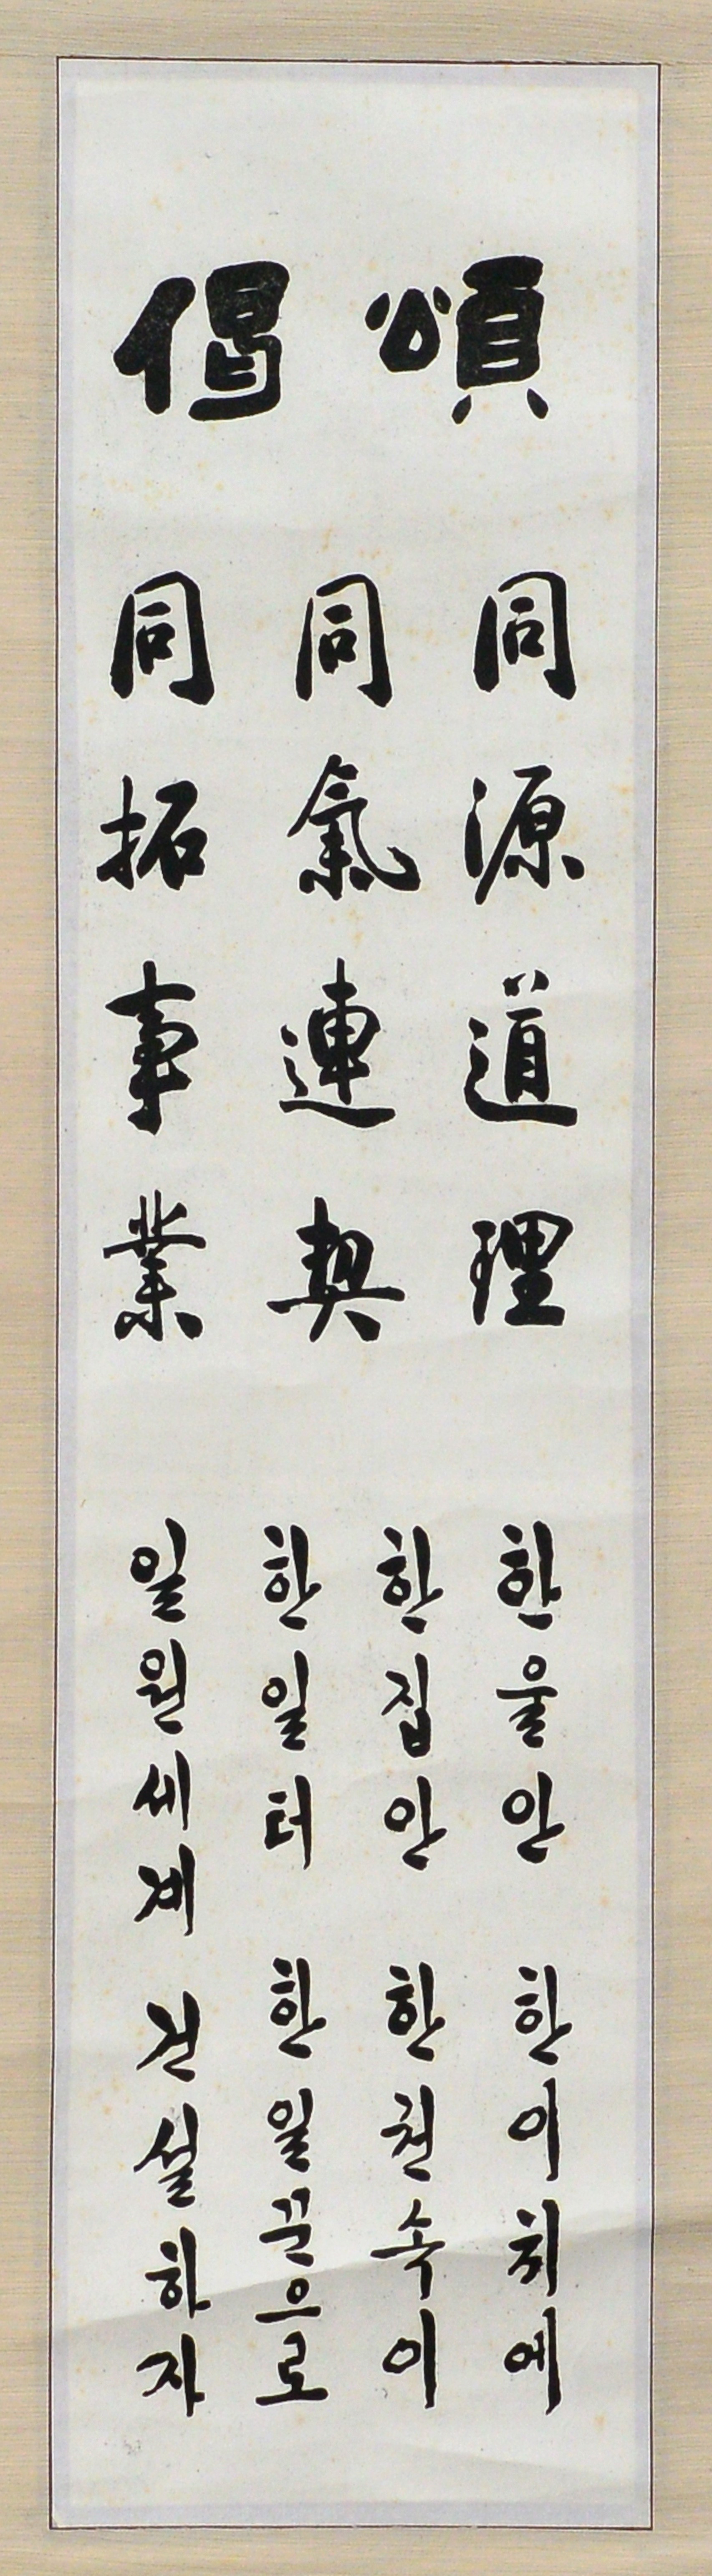 頌偈
同源道理
同氣連契
同拓事業
한울안 한이치에
한집안 한권속이
한일터 한일꾼으로
일원세계 건설하자